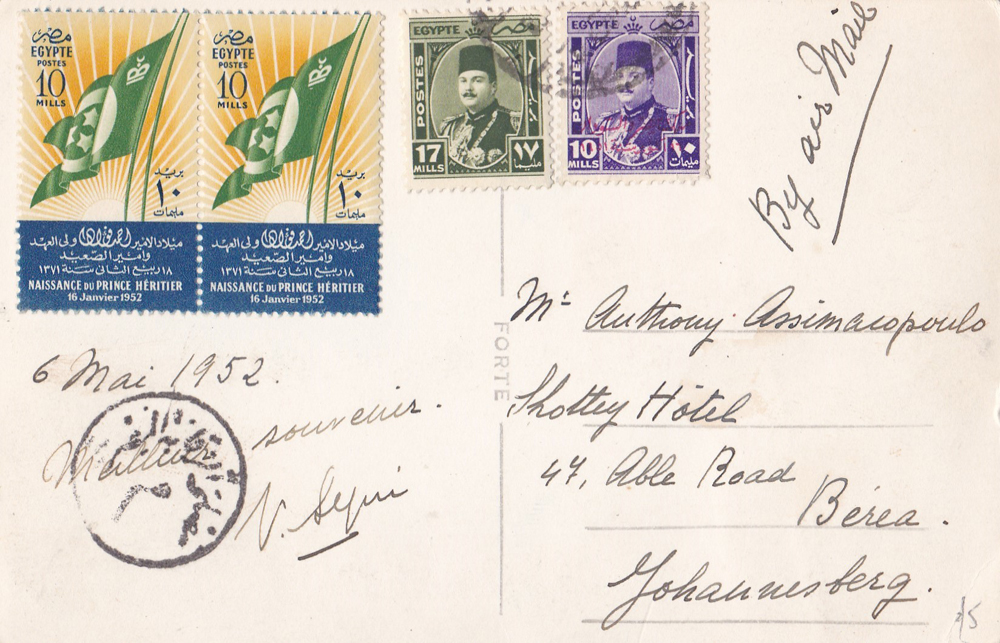 مصر
EGYPTE
POSTES
10
MILLS
بريد
١٠
مليمات
ميلاد الامير احمد فؤاد ولى العهد
وامير الصعيد
١٨ ربيع الثانى سنة ١٣٧١
NAISSANCE DU PRINCE HÉRITIER
16 Janvier 1952
مصر
EGYPTE
POSTES
10
MILLS
بريد
١٠
مليمات
ميلاد الامير احمد فؤاد ولى العهد
وامير الصعيد
١٨ ربيع الثانى سنة ١٣٧١
NAISSANCE DU PRINCE HÉRITIER
16 Janvier 1952
EGYPTE مصر
POSTES
17
MILLS
١٧
مليما
EGYPTE مصر
POSTES
10
MILLS
١٠
مليمات
By air Mail
6 Mai 1952.
Meilleur souvenir.
FORTE
Mr Anthony Assimacopoulo
Shottey Hôtel
47, Able Road
Béréa.
Johannesberg.
2/5